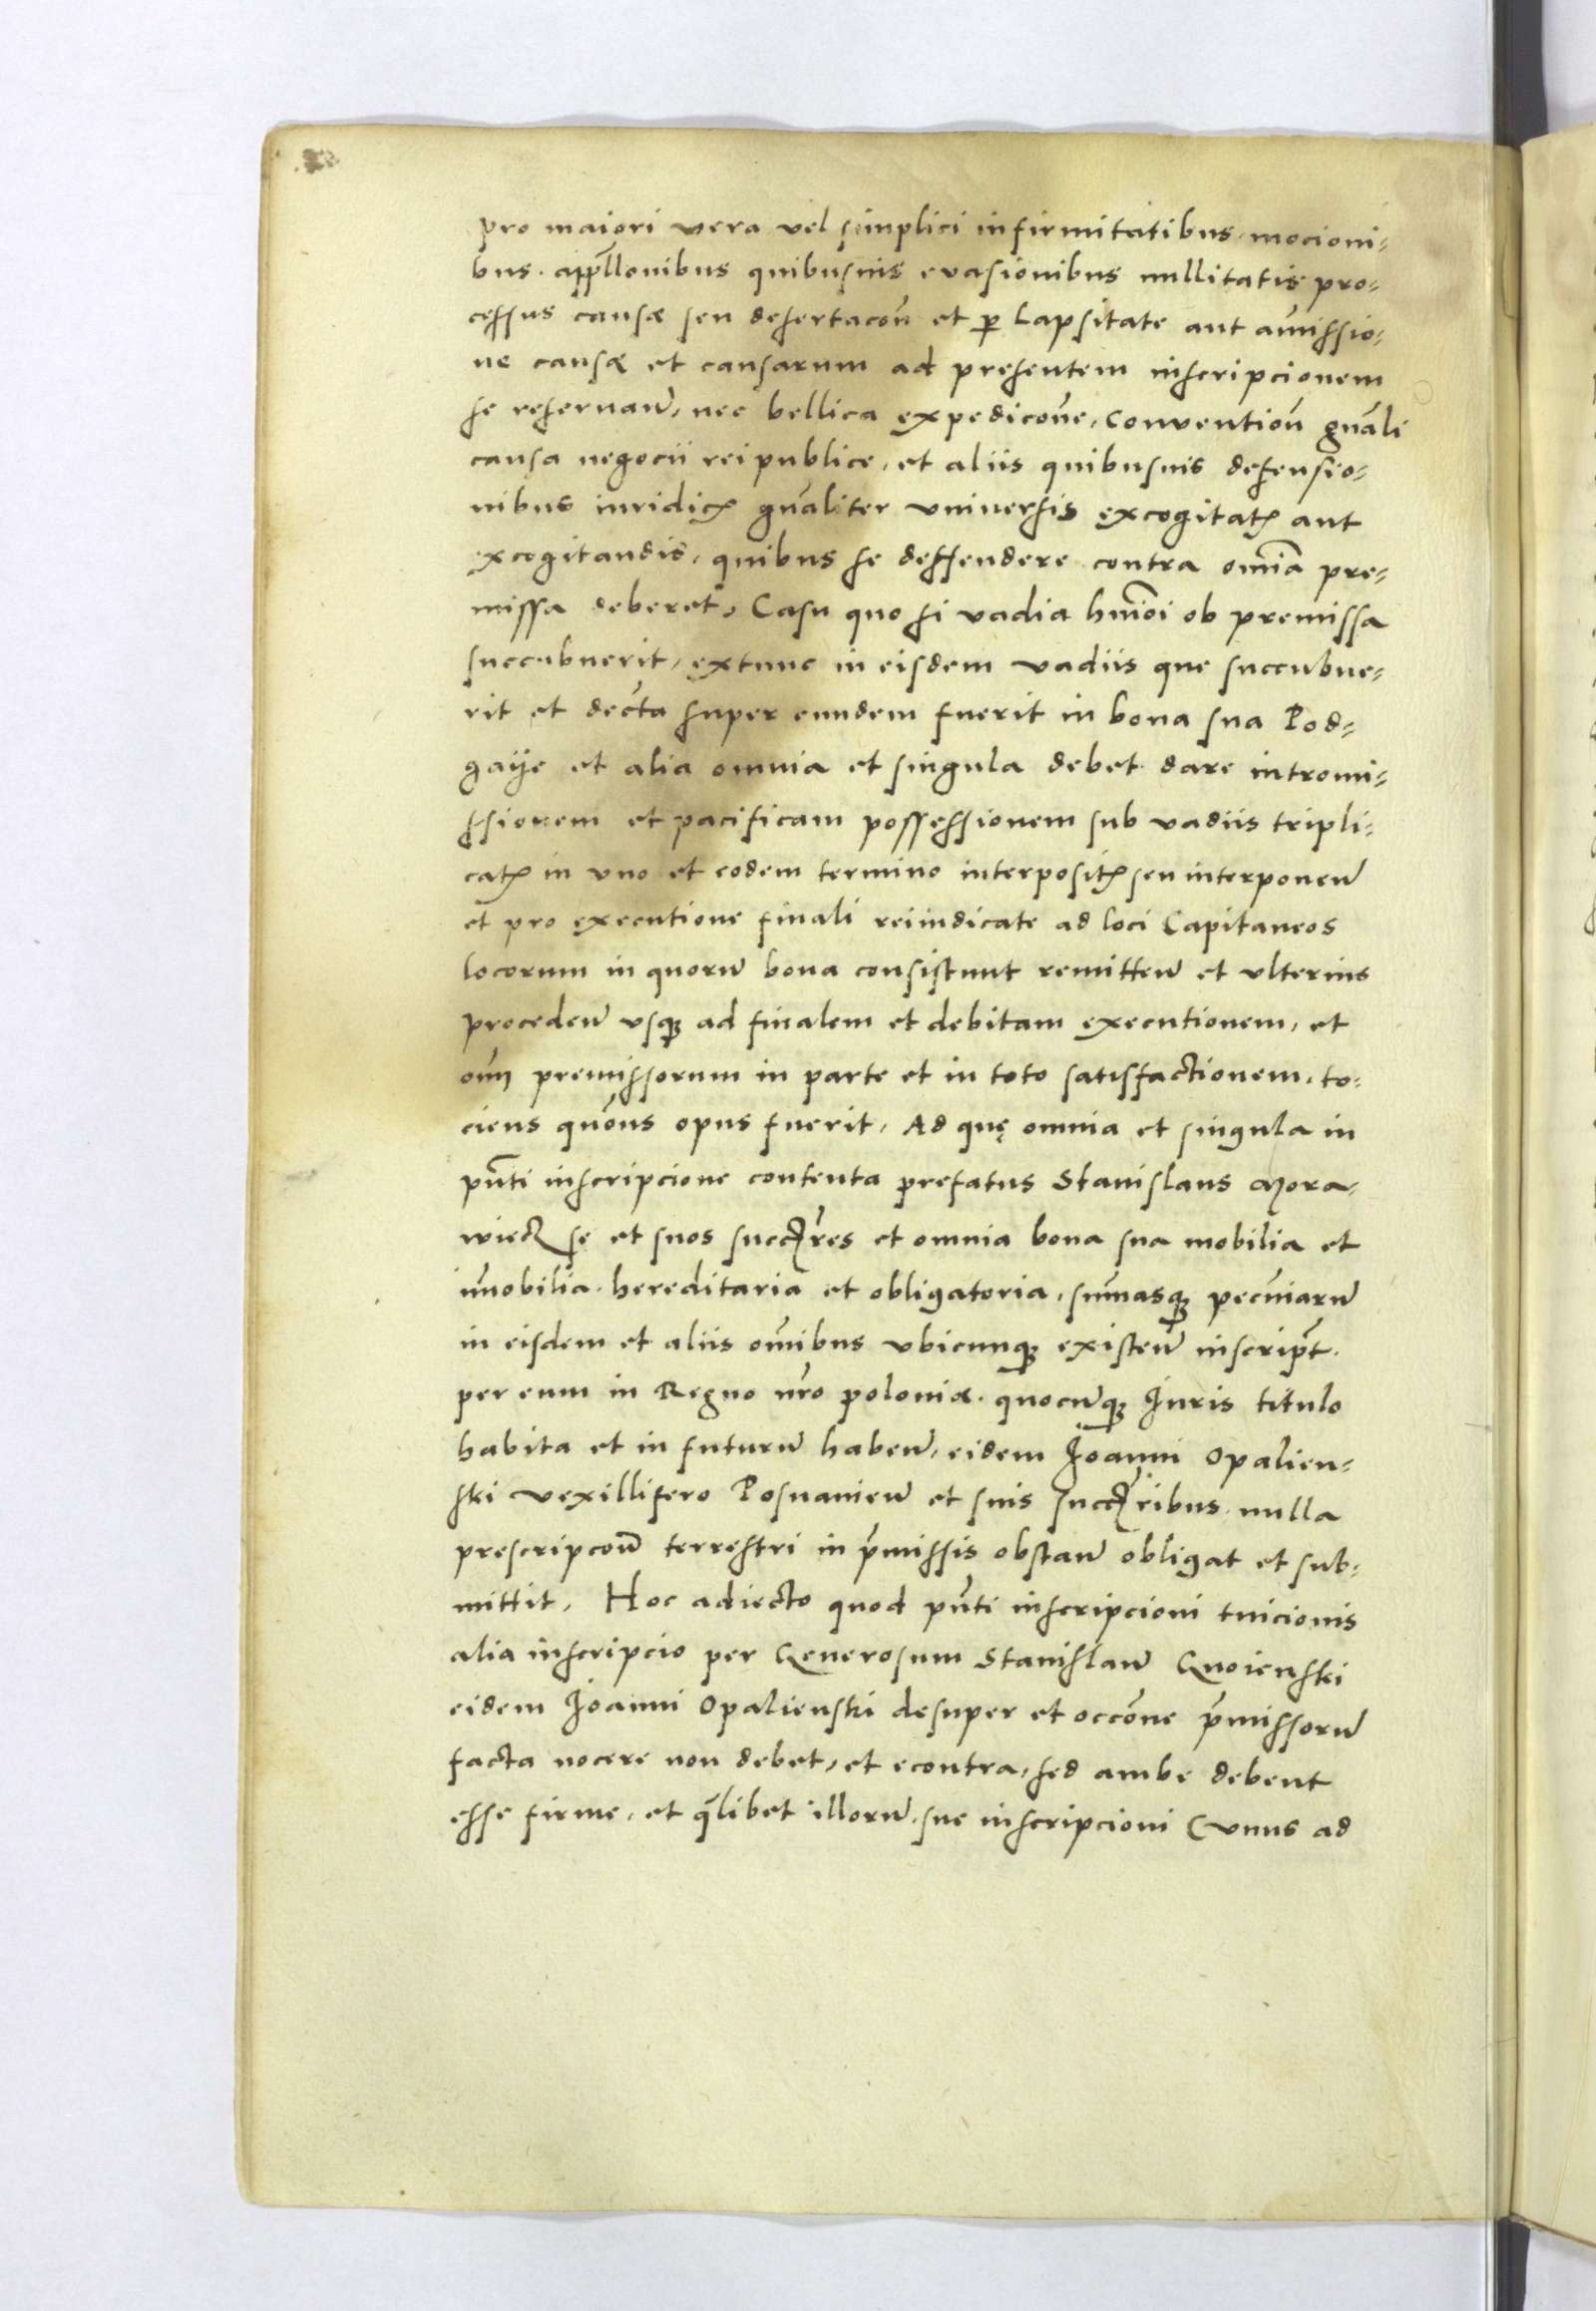 pro maiori vera vel simplici infirmitatibus. mocioni-
bus. appellonibus quibusuis evasionibus nullitatis pro-
cessus causæ seu desertacoñ et ꝑ lapsitate aut amissio-
ne causæ et causarum ad presentem inscripcionem
se reseruañ, nec bellica expedicoñe, Conventioñ gñali
causa negocii reipublice, et aliis quibusuis defensio-
nibus iuridicꝭ gñaliter vniuersis excogitatꝭ aut
excogitandis, quibus se deffendere contra omĩa pre-
missa deberet, Casu quo si vadia hmõi ob premissa
succubuerit, extunc in eisdem vadiis que succubue-
rit et decta super eundem fuerit in bona sua Pod-
gaÿe et alia omnia et singula debet dare intromi-
ssionem et pacificam possessionem sub vadiis tripli-
catꝭ in vno et eodem termino interpositꝭ seu interponeñ
et pro executione finali reiudicate ad loci Capitaneos
locorum in quorũ bona consistunt remitteñ et vlterius
procedeñ vsqꝫ ad finalem et debitam executionem, et
oim̃ premissorum in parte et in toto satisfactionem, to-
ciens quõns opus fuerit, Ad quę omnia et singula in
pñti inscripcione contenta prefatus Stanislaus Mora-
wieczꝭ se et suos succꝭres et omnia bona sua mobilia et
im̃obilia. hereditaria et obligatoria, sum̃asqꝫ pecũiarũ
in eisdem et aliis om̃ibus vbicunqꝫ existeñ inscripĩt.
per eum in Regno nr̃o poloniæ. quocũqꝫ Iuris titulo
habita et in futurũ habeñ, eidem Ioanni Opalien-
ski vexillifero Posnanieñ et suis succꝭribus. nulla
prescripcoñ terrestri in p̃missis obstañ obligat et sub-
mittit, Hoc adiecto quod pñti inscripcioni tuicionis
alia inscripcio per Generosum Stanislaũ Gnoienski
eidem Ioanni Opalienski desuper et occoñe p̃missorũ
facta nocere non debet, et econtra, sed ambe debent
esse firme, et q̃libet illorũ. sue inscripcioni (vnus ad